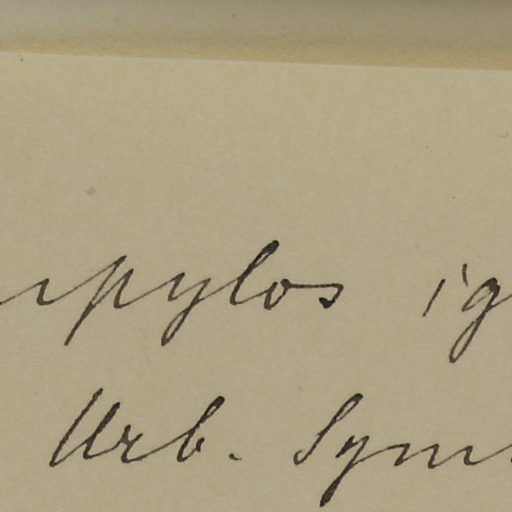 upylos ig
Urb. Sym